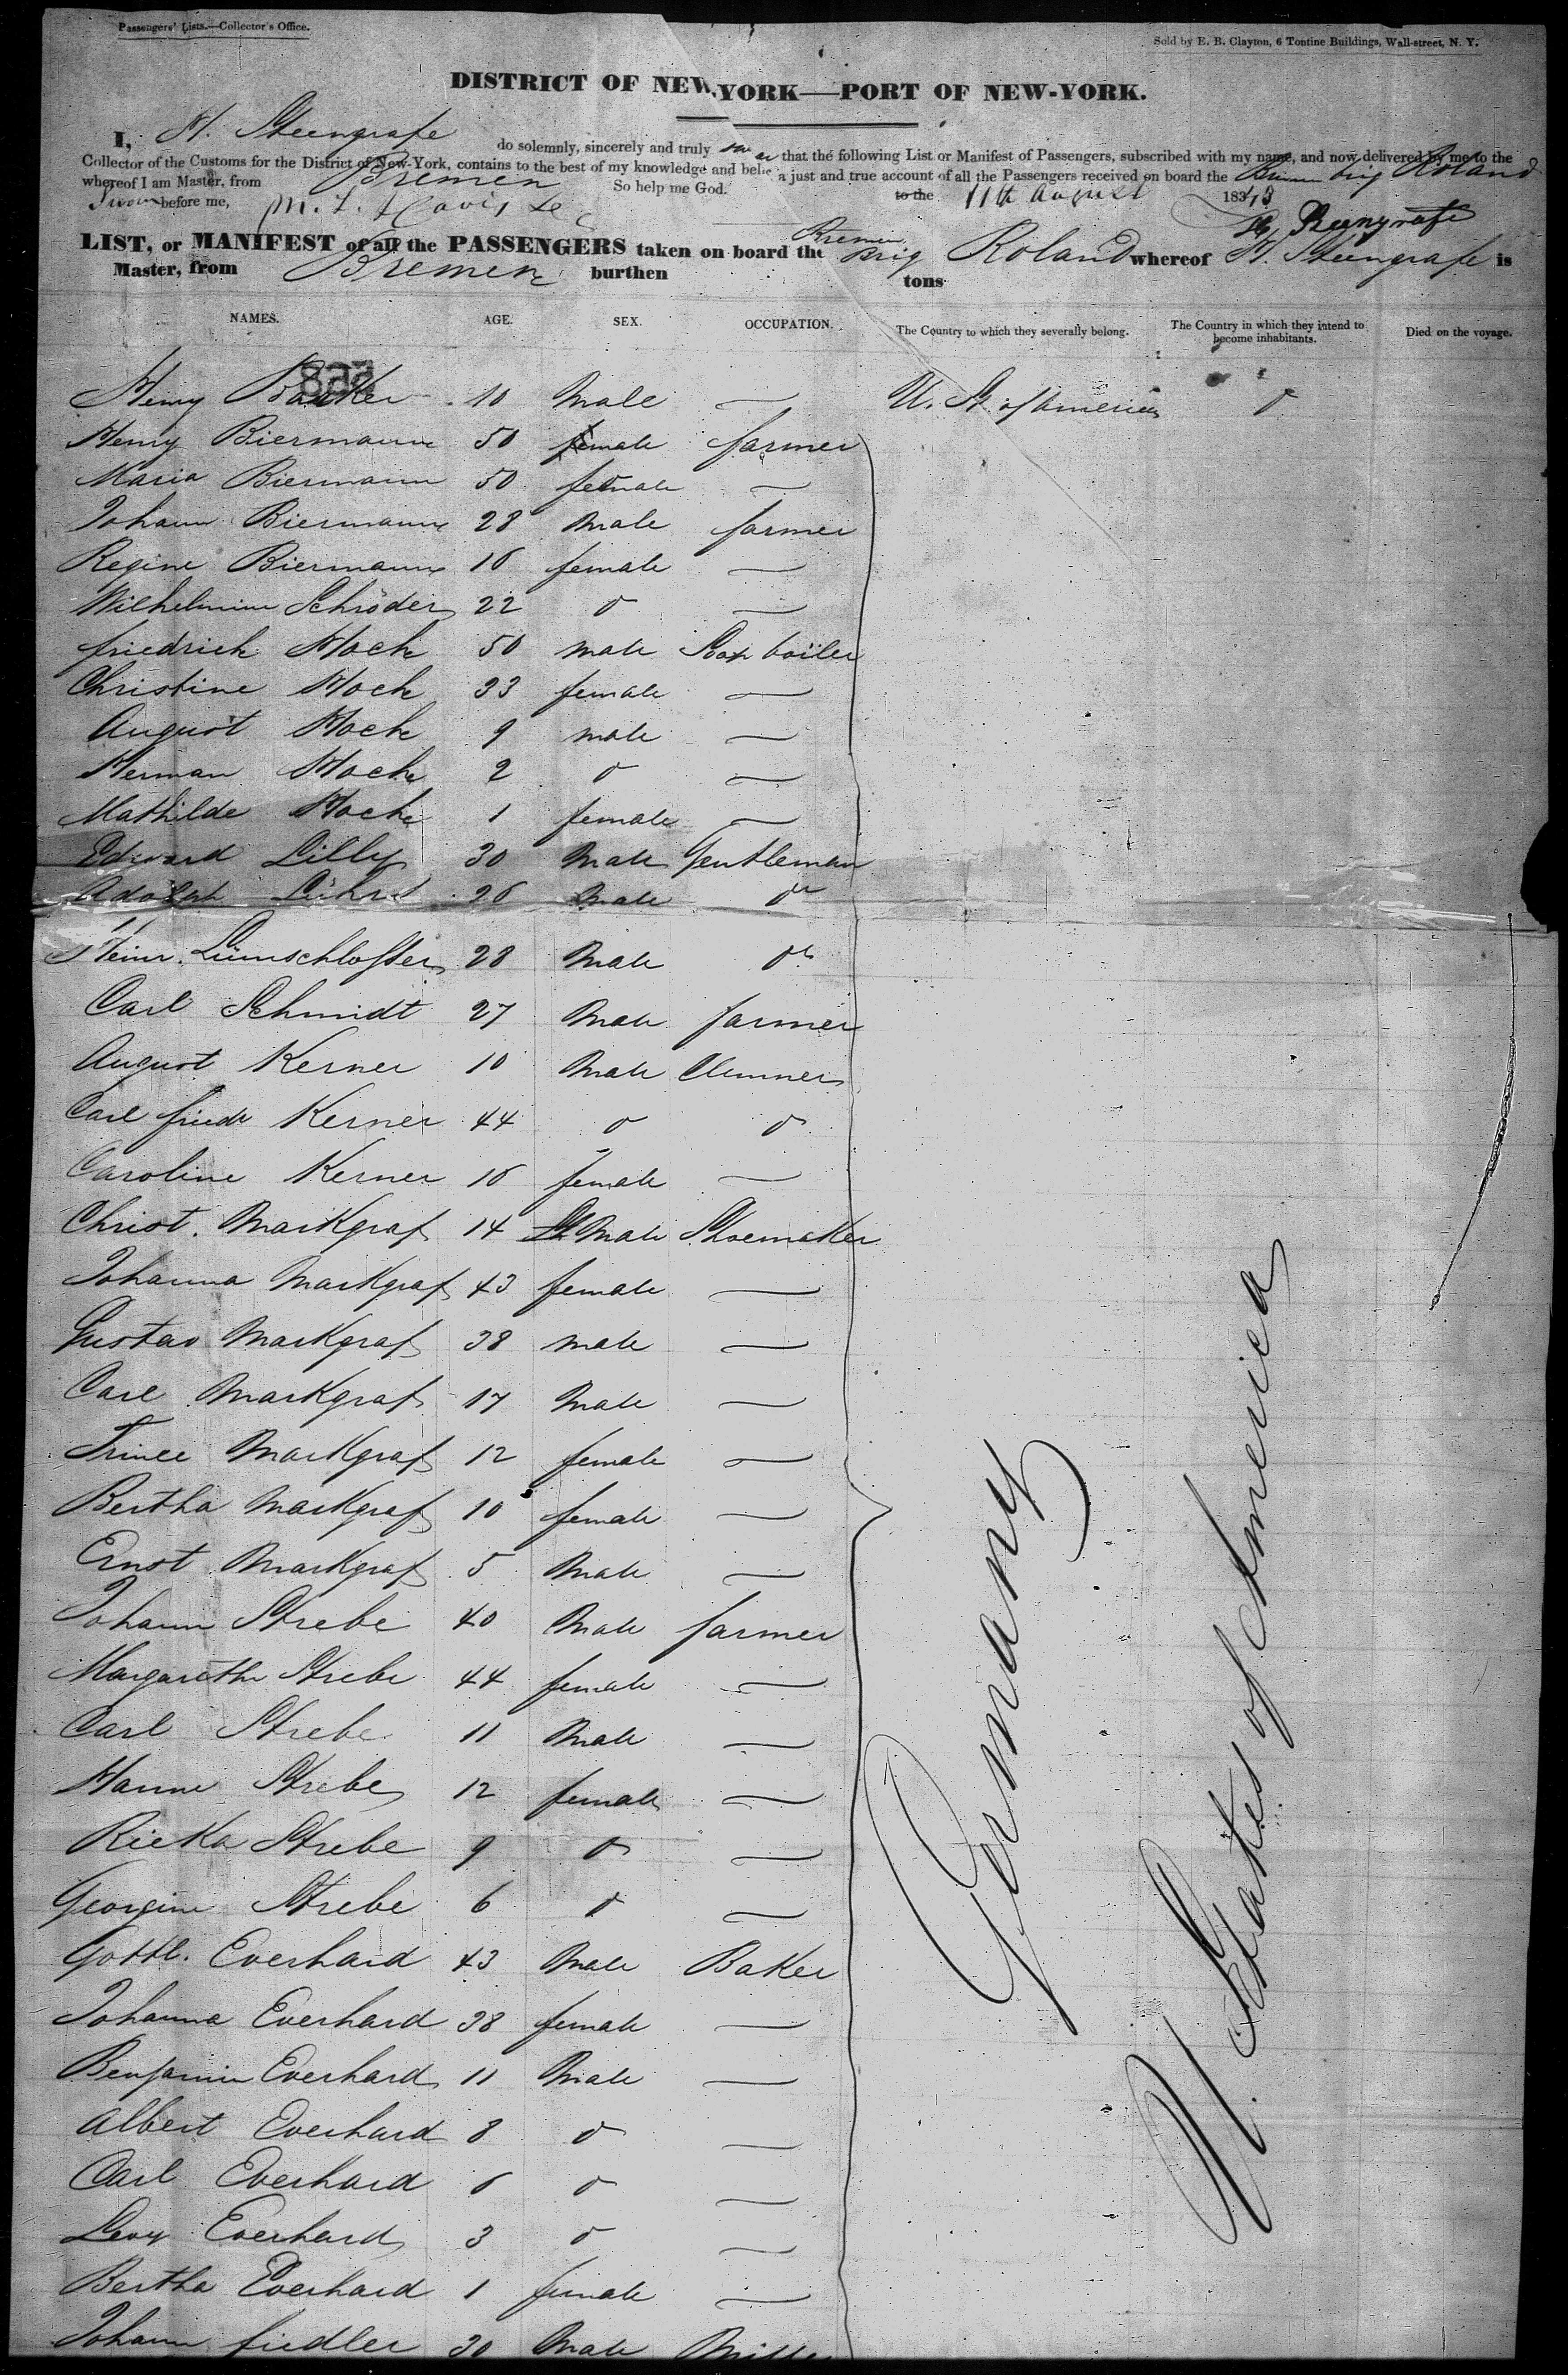 Passengers' Lists.—Collector's Office.
Sold by E. B. Clayton, 6 Tontine Buildings, Wall-street, N. Y.
DISTRICT OF NEW-YORK—PORT OF NEW-YORK.
I, H. Steengrafe do solemnly, sincerely and truly swear that the following List or Manifest of Passengers, subscribed with my name, and now delivered by me to the
Collector of the Customs for the District of New-York, contains to the best of my knowledge and belief a just and true account of all the Passengers received on board the Bremen brig Roland
whereof I am Master, from Bremen So help me God.
Sworn before me, to the 11th August 1843
H. Steengrafe
LIST, or MANIFEST of all the PASSENGERS taken on board the Bremen Brig Roland whereof H. Steengrafe is
Master, from Bremen burthen tons
NAMES. AGE. SEX. OCCUPATION. The Country to which they severally belong. The Country in which they intend to become inhabitants. Died on the voyage.
858
Henry Banker 10 Male — U. St. of America d
Henry Biermann 50 male farmer
Maria Biermann 50 female —
Johann Biermann 28 Male farmer
Regine Biermann 16 female —
Wilhelmine Schröder 22 d —
friedrich Hock 50 male Soap boiler
Christine Hock 33 female —
August Hock 9 male —
Herman Hock 2 d —
Mathilde Hock 1 female —
Edward Lilly 30 Male Gentleman
Adolph Lührs 26 Male do
Heinr. Lümschlosser 28 Male do
Carl Schmidt 27 Male farmer
August Kerner 10 Male
Carl friedr Kerner 44 d d
Caroline Kerner 16 female —
Christ. Markgraf 14 Male Shoemaker
Johanna Markgraf 43 female —
Gustav Markgraf 38 male —
Carl Markgraf 17 Male —
Trinee Markgraf 12 female —
Bertha Markgraf 10 female —
Ernst Markgraf 5 Male —
Johann Strebe 40 Male farmer
Margarethe Strebe 44 female —
Carl Strebe 11 Male —
Hanne Strebe 12 female —
Rieka Strebe 9 d —
Georgine Strebe 6 d —
Gottl. Everhard 43 Male Baker
Johanna Everhard 38 female —
Benjamin Everhard 11 Male —
Albert Everhard 8 d —
Carl Everhard 6 d —
Levy Everhard 3 d —
Bertha Everhard 1 female —
Johann fiedler 30 Male Miller
Germany
U. States of America